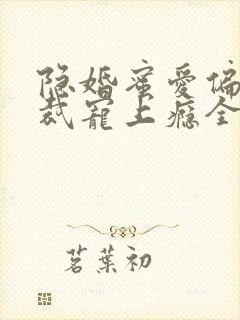 隐婚蜜爱偏
裁宠上瘾全
茗葉初